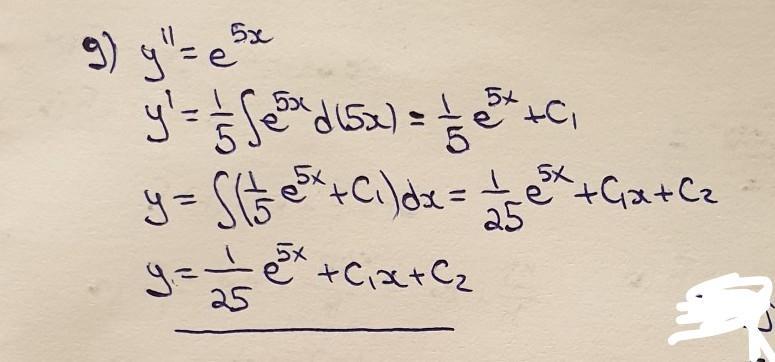 g) y'' = e^{5x}
y' = \frac{1}{5} ∫ e^{5x} d(5x) = \frac{1}{5} e^{5x} + C_1
y = ∫ (\frac{1}{5} e^{5x} + C_1) dx = \frac{1}{25} e^{5x} + C_1x + C_2
y = \frac{1}{25} e^{5x} + C_1x + C_2